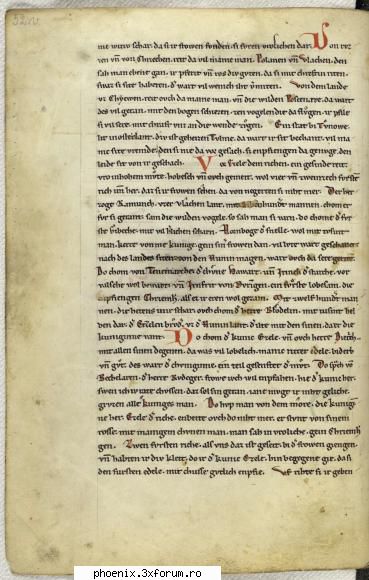 52.v.
mit vil vil schar da si ir frowen fvnden si foren vrolichen dar. Von rvz
en vñ von Chriechen reit da vil manic man. Polanen vñ vlachen. den
sah man ebene gan. ir pfert vñ ros div gvten. da si mit chreften riten.
swaz si site habeten. der wart vil wenich iht vermiten. Von dem lande
vz Chyewen reit ovch da manic man. vñ die wilden Pesenære. da wart
des vil getan. mit den bogen schiezen. zen vogelen die da flvgen. ir pfile
si vil sere. mit chraft vnz an die wende zvgen. Ein stat bi Tvnowe
lit in osterlant. div ist geheizen Tvlme. da wart ir sit bechant. vil ma
nic site vremde. den si nie da vor gesach. si enpfiengen da genvge. den
leide sit von ir geschach. Vor Ezele dem richen. ein gesinde reit.
vro in hohem mvte. hobesch vñ ovch gemeit. wol vier vñ zweinzech fvrste
rich vñ her. daz si ir frowen sehen. da von negerten si niht mer. Der her
zoge Ramvnch. vzer vlachen lant. mit hvndert mannen. chom er
fvr si gerant. sam die wilden vogele. so sah man si varn. do chom der fvr
ste Gybeche. mit vil herlichen scharn. Hornboge der snelle. wol mit tvsint
man. kerte von me kunige. gein siner frowen dan. vil lvte wart geschallet
nach des landes siten. von den Hunin magen. wart ovch da sere geriten.
Do chom von Tenemarche. der chvne Hawart. vñ Irinch der starche. vor
valsche wol bewart. vñ Irnfrit von Dvrigen. ein fvrste lobesam. die
enpfiengen Chriemh. als ez ir eren wol gezam. Mit zwelf hvndert man
nen. die heten si in ir schar. ovch chom der herre Blodelin. mit tvsint hel
den dar. der Ezelen brvder. vz der Hunin lant. der zoete mit den sinen. dar die
kuniginne vant. Do chom der kunic Ezele. vñ ovch herre Dietch.
mit allen sinen degenen. da was vil lobelich. manic ritter edele. biderb
vñ gvt. des wart der chvniginne. ein teil gesenftet der mvt. Do sprach vō
Bechelaren. der herre Rvdeger. frowe vch wil enpfahen. hie der kunic her.
swen ich iv rate chvssen. daz sol sin getan. ja ne mvgt ir niht geliche.
grvzen alle kuniges man. Do hvp man von dem more. die kunigin
ne her. Ezele der riche. enbeite ovch do niht mer. er stvnt von sinem
rosse. mit manigem chvnen man. man sah in vroliche. gein Chriemh
gen. Zwen fvrsten riche. als vns daz ist geseit. bi der frowen giengen.
vñ habten ir div kleit. do ir der kunic Ezele. hin begegene gie. da si
den fvrsten edele. mit chvsse gvtlich enpfie. Vf rihte si ir geben
phoenix.3xforum.ro